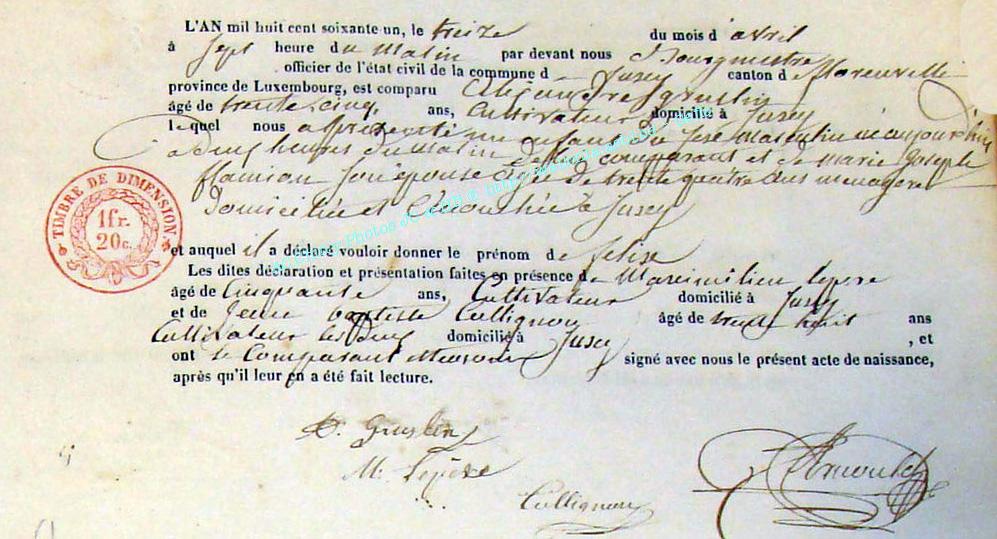 L'AN mil huit cent soixante un, le treize du mois d'avril
à sept heure du Matin par devant nous Bourgmestre
officier de l'état civil de la commune d Jusey canton d
province de Luxembourg, est comparu
âgé de trente cinq ans, Cultivateur domicilié à Jusey
lequel nous a présenté un enfant du sexe masculin né aujourd'hui
a deux heures du matin de lui comparant et de Marie Joseph
son épouse agée de trente quatre ans menagere
domiciliée et à Jusey
TIMBRE DE DIMENSION
1 fr.
20 c.
et auquel il a déclaré vouloir donner le prénom de Felix
Les dites déclaration et présentation faites en présence de Maximilien lepere
âgé de Cinquante ans, Cultivateur domicilié à Jusey
et de Jean baptiste Collignon âgé de trente huit ans
Cultivateur les deux domicilié à Jusey , et
ont le Comparant signé avec nous le présent acte de naissance,
après qu'il leur en a été fait lecture.
M. Lepère
Collignon